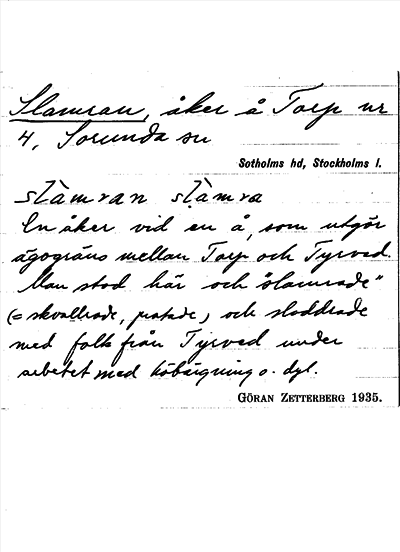 Slamran, åker å Torp nr
4, Sorunda sn
Sotholms hd, Stockholms l.
slàmran slàmra
En åker vid en å, som utgör
ägogräns mellan Torp och Tyrved.
Man stod här och "slamrade"
(= skvallrade, pratade,) och sloddrade
med folk från Tyrved under
arbetet med höbärgning o. dyl.
GÖRAN ZETTERBERG 1935.